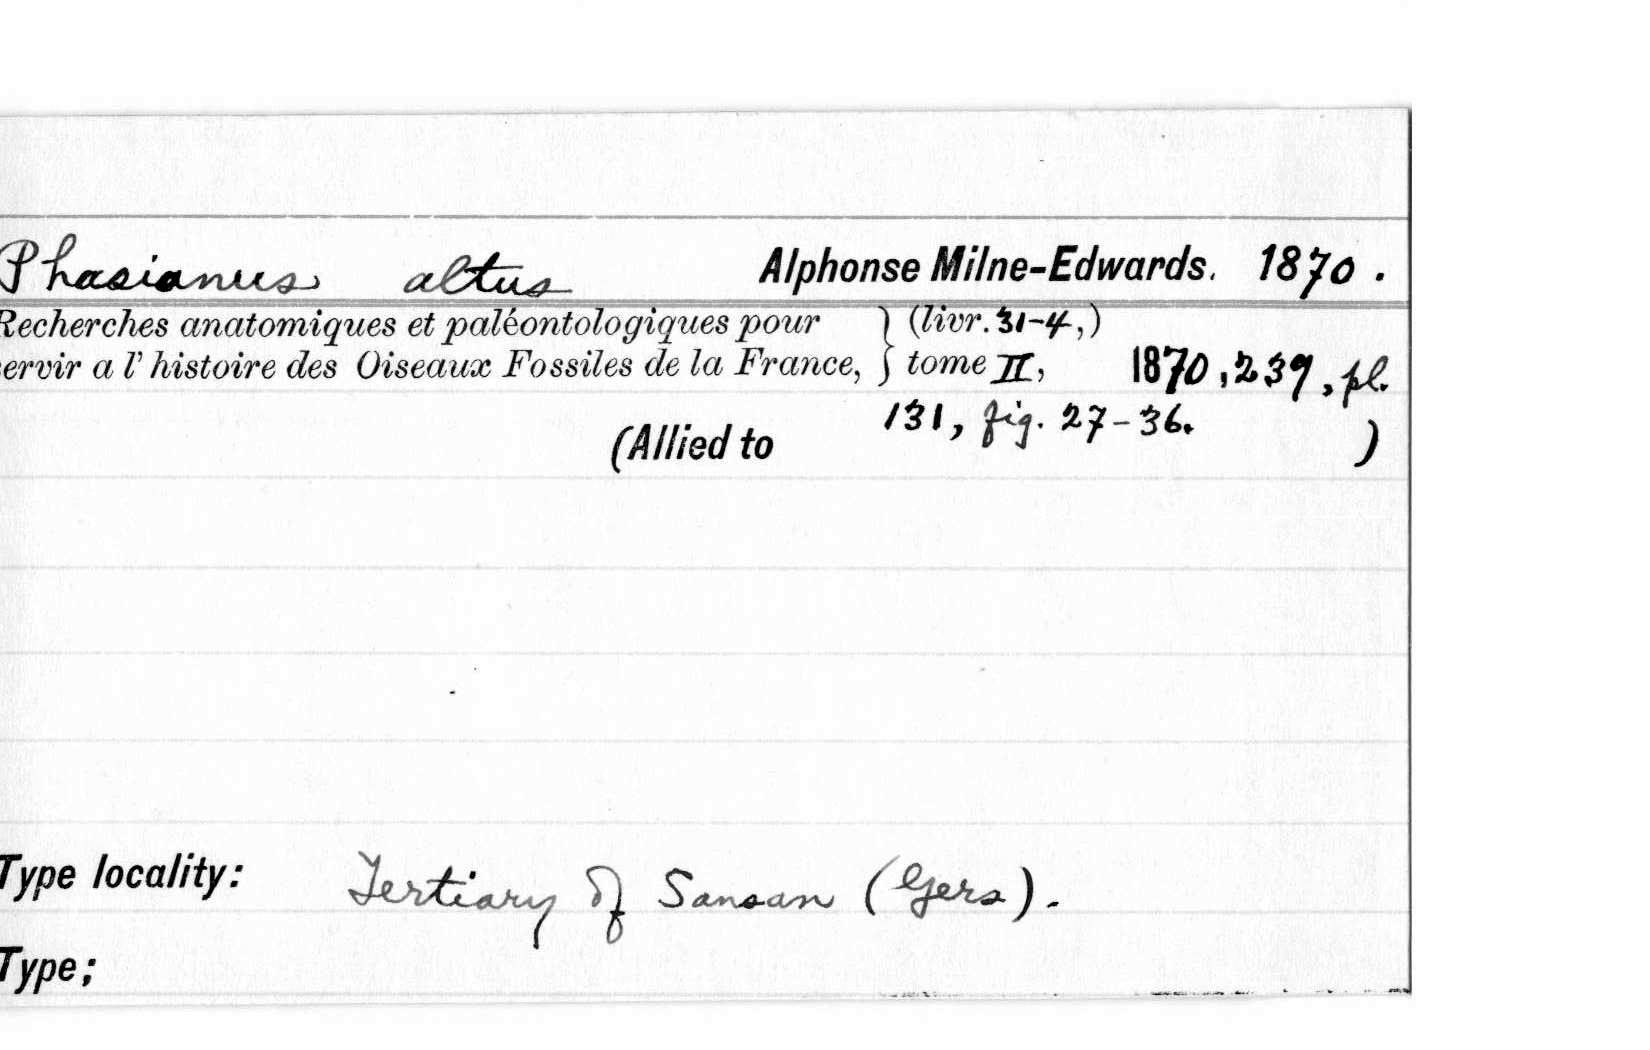 Phasianus altus Alphonse Milne-Edwards. 1870.
Recherches anatomiques et paléontologiques pour } (livr. 31-4,)
servir a l' histoire des Oiseaux Fossiles de la France, } tome II, 1870, 239, pl.
131, fig. 27-36.
(Allied to )
Type locality: Tertiary of Sansan (Gers).
Type;